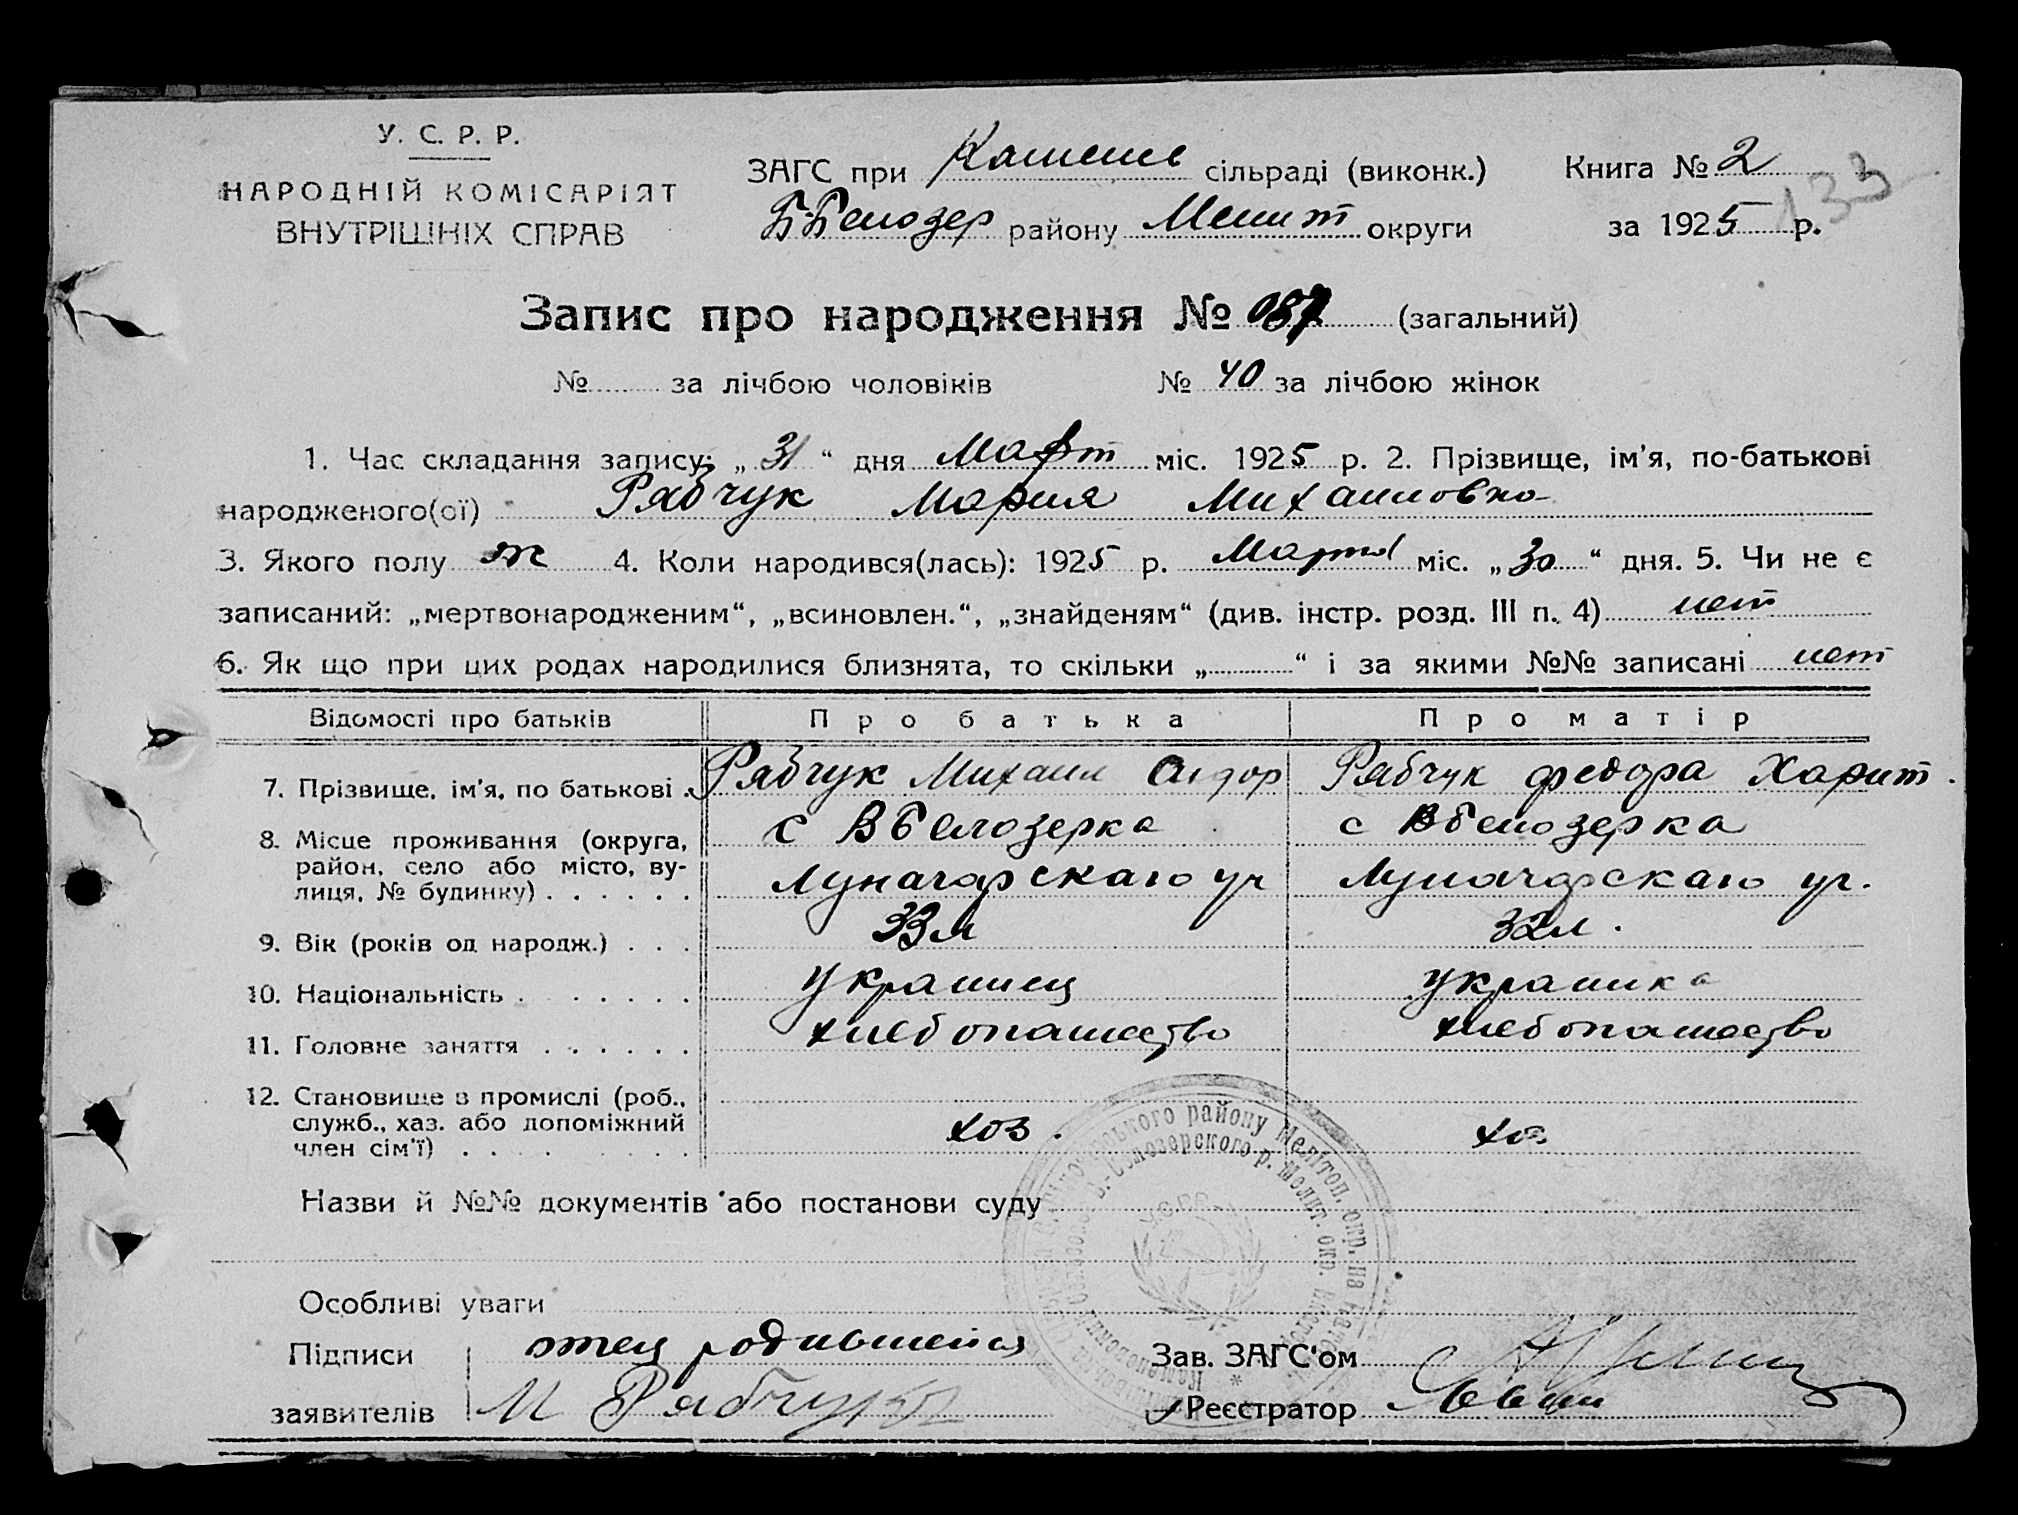 У. С. Р. Р.
НАРОДНІЙ КОМІСАРІЯТ
ВНУТРІШНІХ СПРАВ
ЗАГС при сільраді (виконк.)
Б-Белозер району Мелит округи
Книга № 2
133
за 1925 р.
Запис про народження № 087 (загальний)
№ за лічбою чоловіків № 40 за лічбою жінок
1. Час складання запису: „ 31 “ дня Март міс. 1925 р. 2. Прізвище, ім'я, по-батькові
народженого(ої) Рябчук Мария Михаиловна
3. Якого полу ж 4. Коли народився(лась): 1925 р. Марта міс. „ 30 “ дня. 5. Чи не є
записаний: „мертвонародженим“, „всиновлен.“, „знайденям“ (див. інстр. розд. III п. 4) нет
6. Як що при цих родах народилися близнята, то скільки „ “ і за якими №№ записані нет
Відомості про батьків Про батька Про матір
7. Прізвище, ім'я, по батькові Рябчук Михаил Сидор Рябчук Федора Харит.
8. Місце проживання (округа, район, село або місто, вулиця, № будинку) с ВБелозерка с ВБелозерка
Луначарскаго ул Луначарскаго ул.
9. Вік (років од народж.) 33 л 32 л.
10. Національність украинец украинка
11. Головне заняття хлебопашество хлебопашество
12. Становище в промислі (роб., служб., хаз. або допоміжний член сім'ї) хоз. хоз
Назви й №№ документів або постанови суду
Особливі уваги
Підписи отец родившейся Зав. ЗАГС'ом
заявителів М Рябчук Реєстратор
району Мелітоп. окр. на
В.-Белозерского р. Мелит. окр.
У.С.Р.Р.